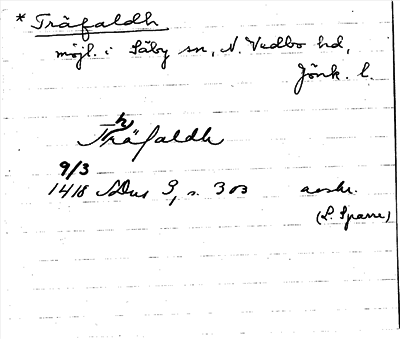 * Träfaldh
möjl. i Säby sn, N. Vedbo hd,
Jönk. l.
Thräfaldh
9/3
1418 SDns 3, s. 303 avskr.
(L. Sparre)